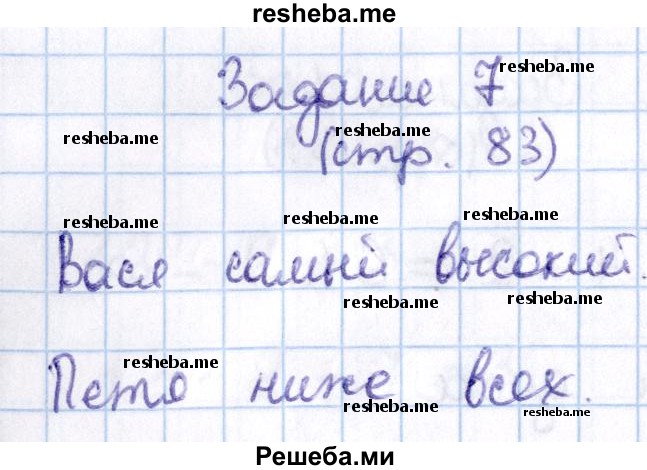 resheba.me
Задание 7
resheba.me
resheba.me
(стр. 83)
resheba.me
resheba.me
resheba.me
resheba.me
Вася самый высокий.
resheba.me
resheba.me
resheba.me
Петя ниже всех.
resheba.me
resheba.me
Решеба.ми